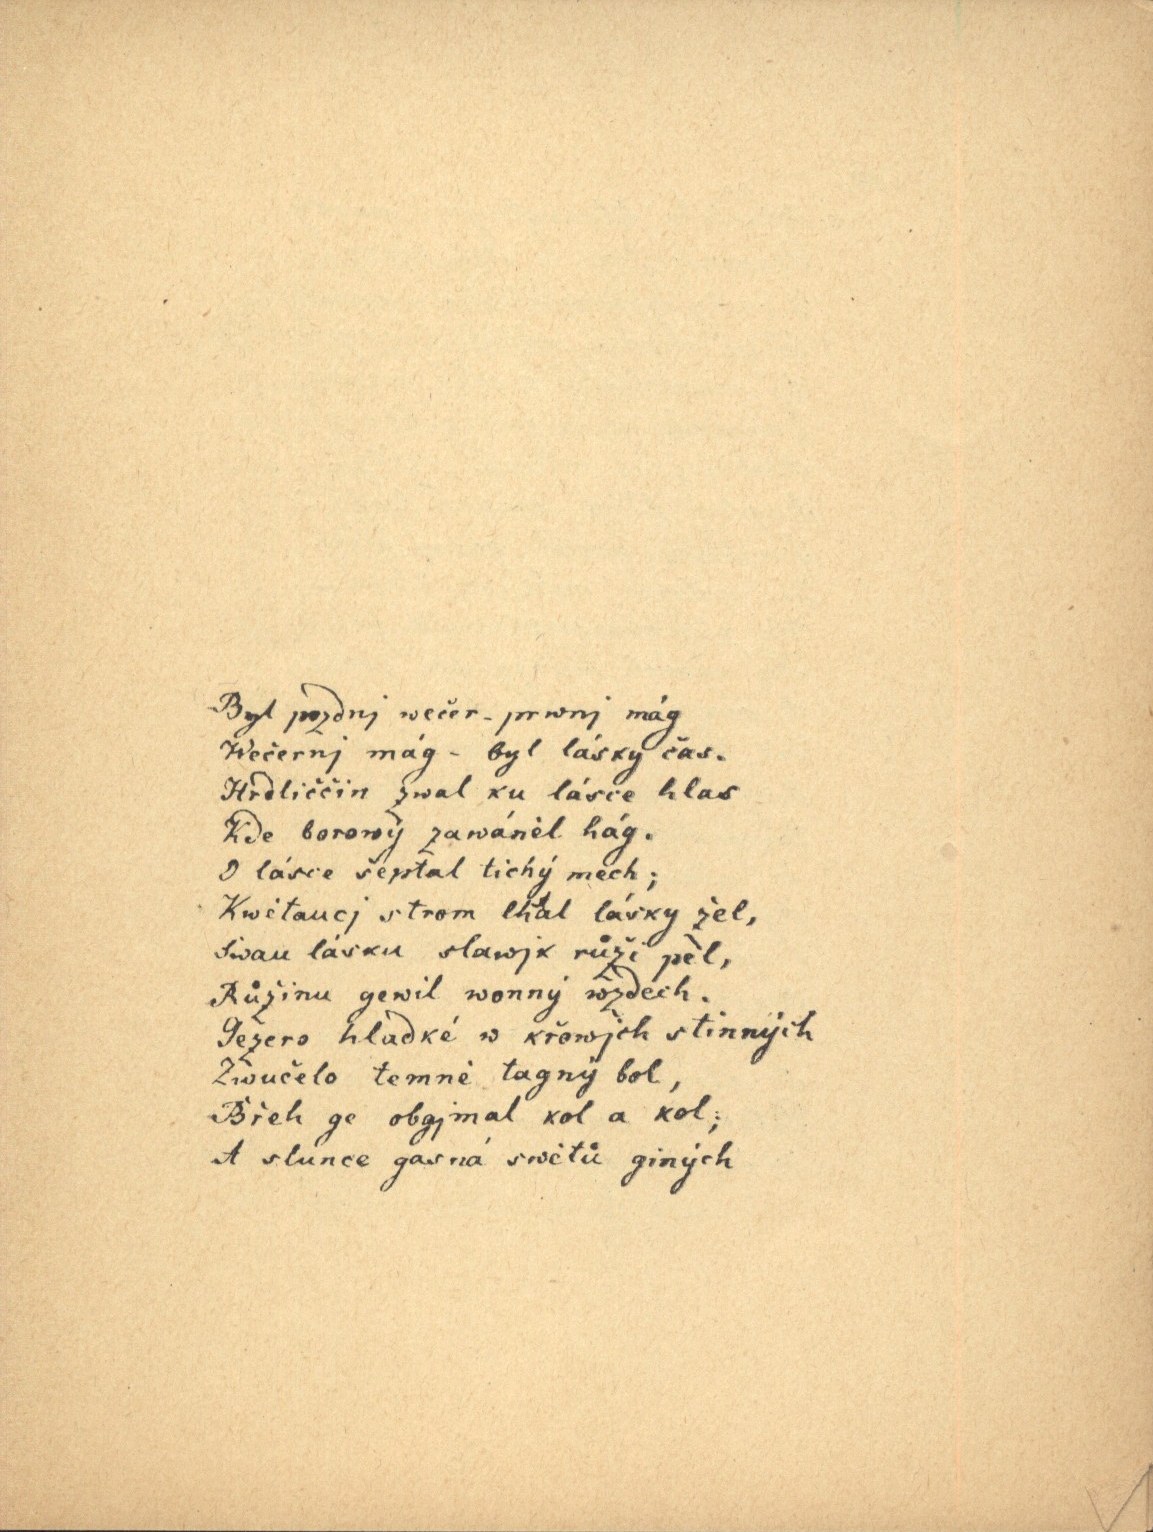 Byl pozdnj wečer - prwnj mág
Wečernj mág - byl lásky čas.
Hrdliččin zwal ku lásce hlas
Kde borowý zawáněl hág.
O lásce šeptal tichý mech;
Kwětaucj strom lhal lásky žel,
Swau lásku slawjk růži pěl,
Růžinu gewil wonný wzdech.
Gezero hladké w křowjch stinných
Zwučelo temně tagný bol,
Břeh ge obgjmal kol a kol;
A slunce gasná swětů giných